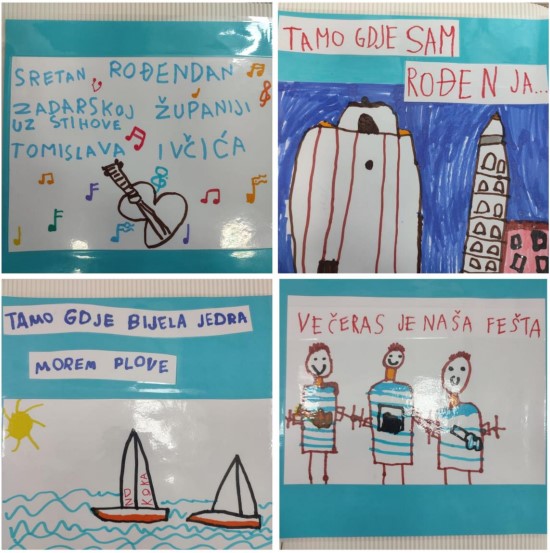 SRETAN ROĐENDAN
ZADARSKOJ ŽUPANIJI
UZ STIHOVE
TOMISLAVA IVČIĆA
TAMO GDJE SAM
ROĐEN JA...
TAMO GDJE BIJELA JEDRA
MOREM PLOVE
VEČERAS JE NAŠA FEŠTA